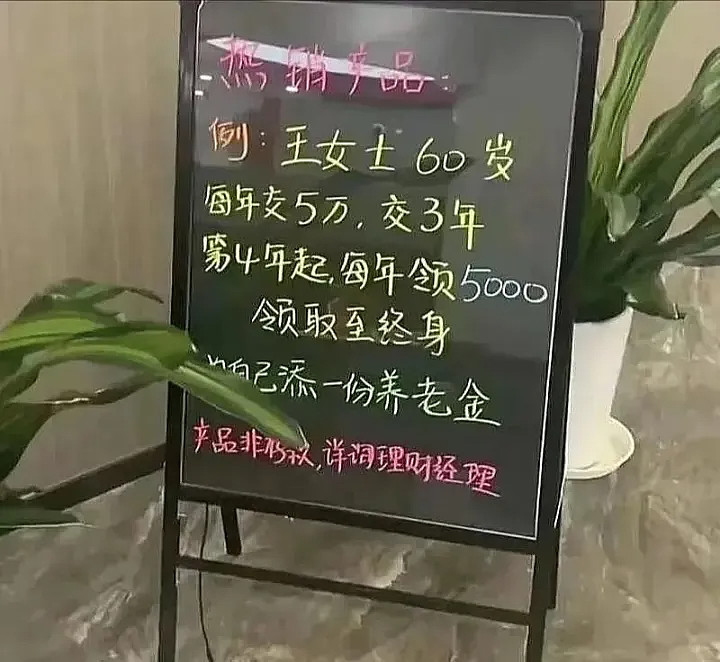 热销产品:
例:王女士 60岁
每年交5万,交3年
第4年起,每年领5000
领取至终身
自己添一份养老金
产品非存款,详询理财经理